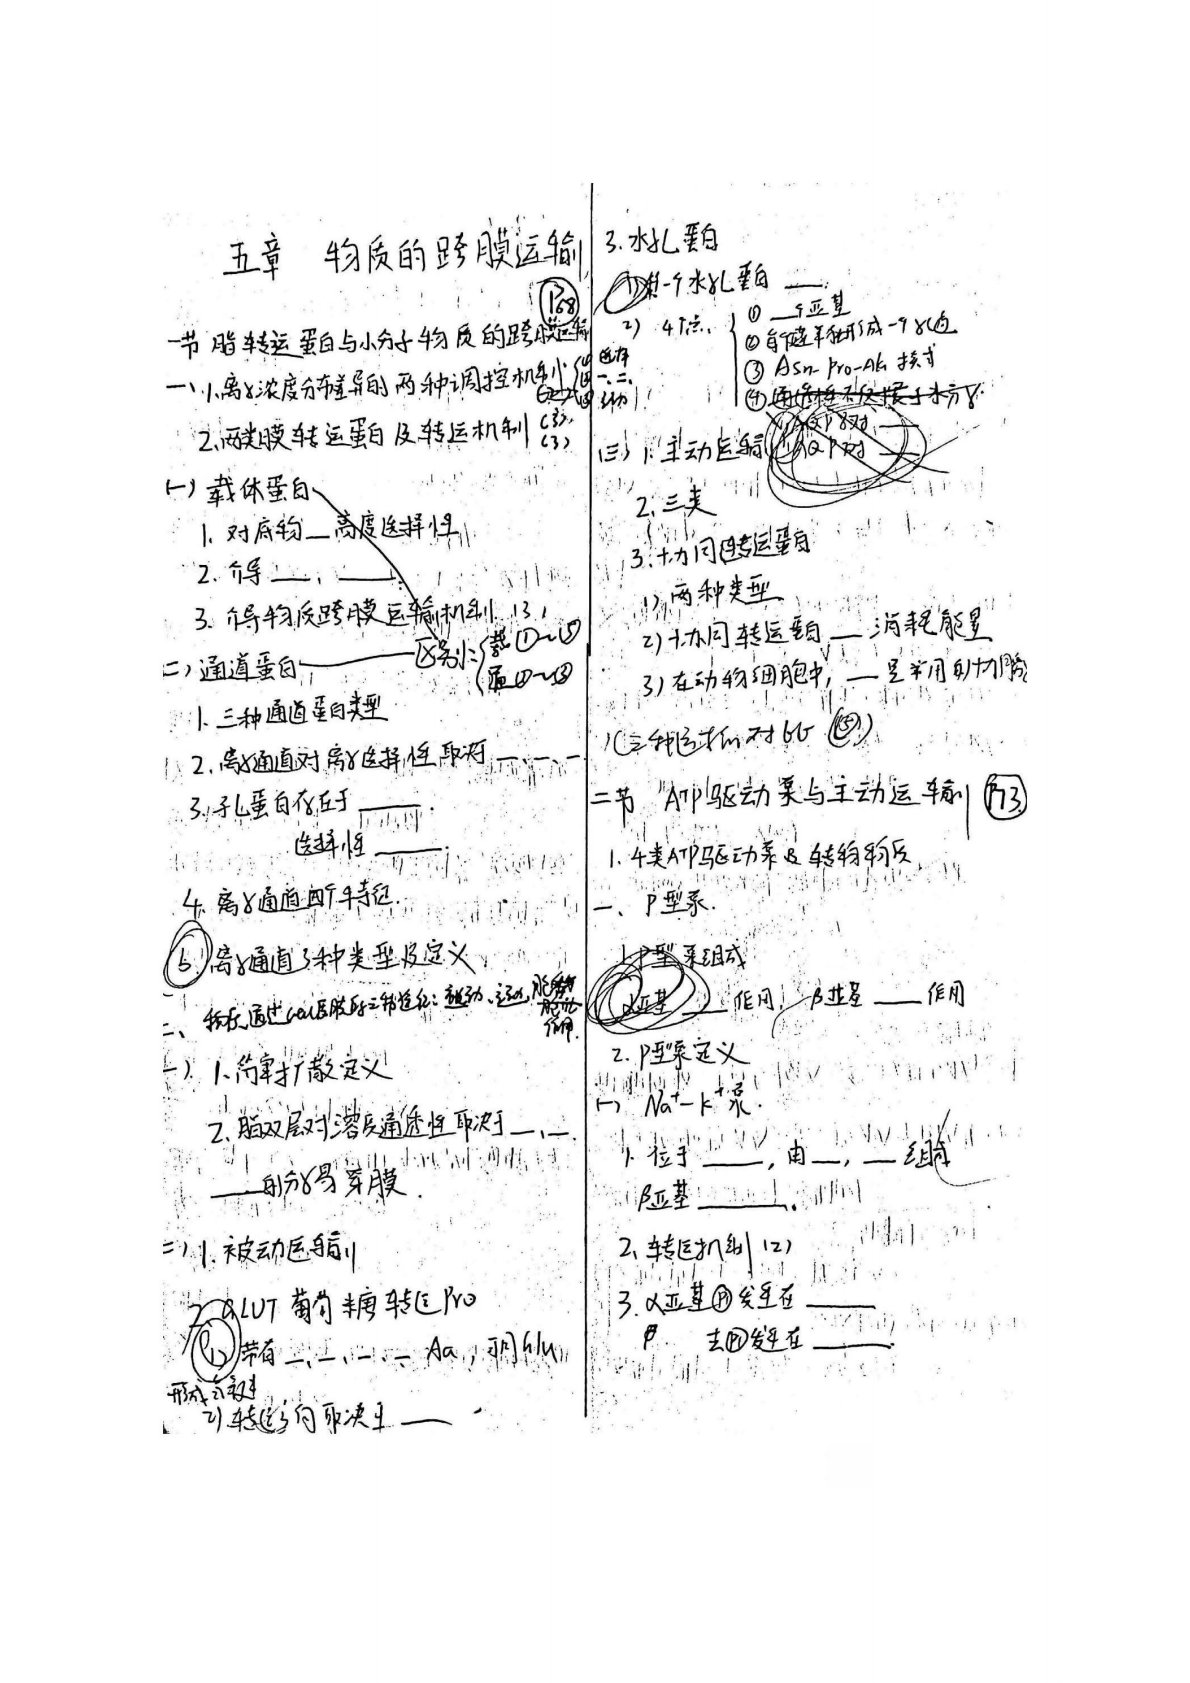 五章 物质的跨膜运输
P68
一节 脂转运蛋白与小分子物质的跨膜运输
一、1.离子浓度分布差异的两种调控机制
2.两类膜转运蛋白及转运机制 (3)
(3)
(一) 载体蛋白
1. 对底物__高度选择性
2. 介导___,___.
3. 介导物质跨膜运输机制 (3)
区别:
(二) 通道蛋白
1. 三种通道蛋白类型
2. 离子通道对离子选择性取决于__、__、__
3. 孔蛋白存在于____.
选择性____.
4. 离子通道四个特征.
5. 离子通道3种类型及定义
二、
(一) 1.简单扩散定义
2. 脂双层对溶质通透性取决于__、__.
___的分子易穿膜.
(二) 1.被动运输
2. GLUT 葡萄糖转运Pro
1) 带有__、__、__、__ Aa,
形成
2) 转运方向取决于___
3.水孔蛋白
1) 第一个水孔蛋白___.
2) 4个点
① __个亚基
② 每个亚基独形成一个孔道
③ Asn-Pro-Ala 模式
(三) 1.主动运输
2. 三类
3. 协同转运蛋白
1) 两种类型
2) 协同转运蛋白__消耗能量
3) 在动物细胞中, __是常用的
二节 ATP驱动泵与主动运输 P73
1. 4类ATP驱动泵及转物物质
一、P型泵.
1.P型泵组成
α亚基___作用, β亚基___作用
2. P型泵定义
(一) Na⁺-K⁺泵.
1. 位于____, 由__, __组成
β亚基______.
2. 转运机制 (2)
3. α亚基Ⓟ发生在____
去Ⓟ发生在_____.